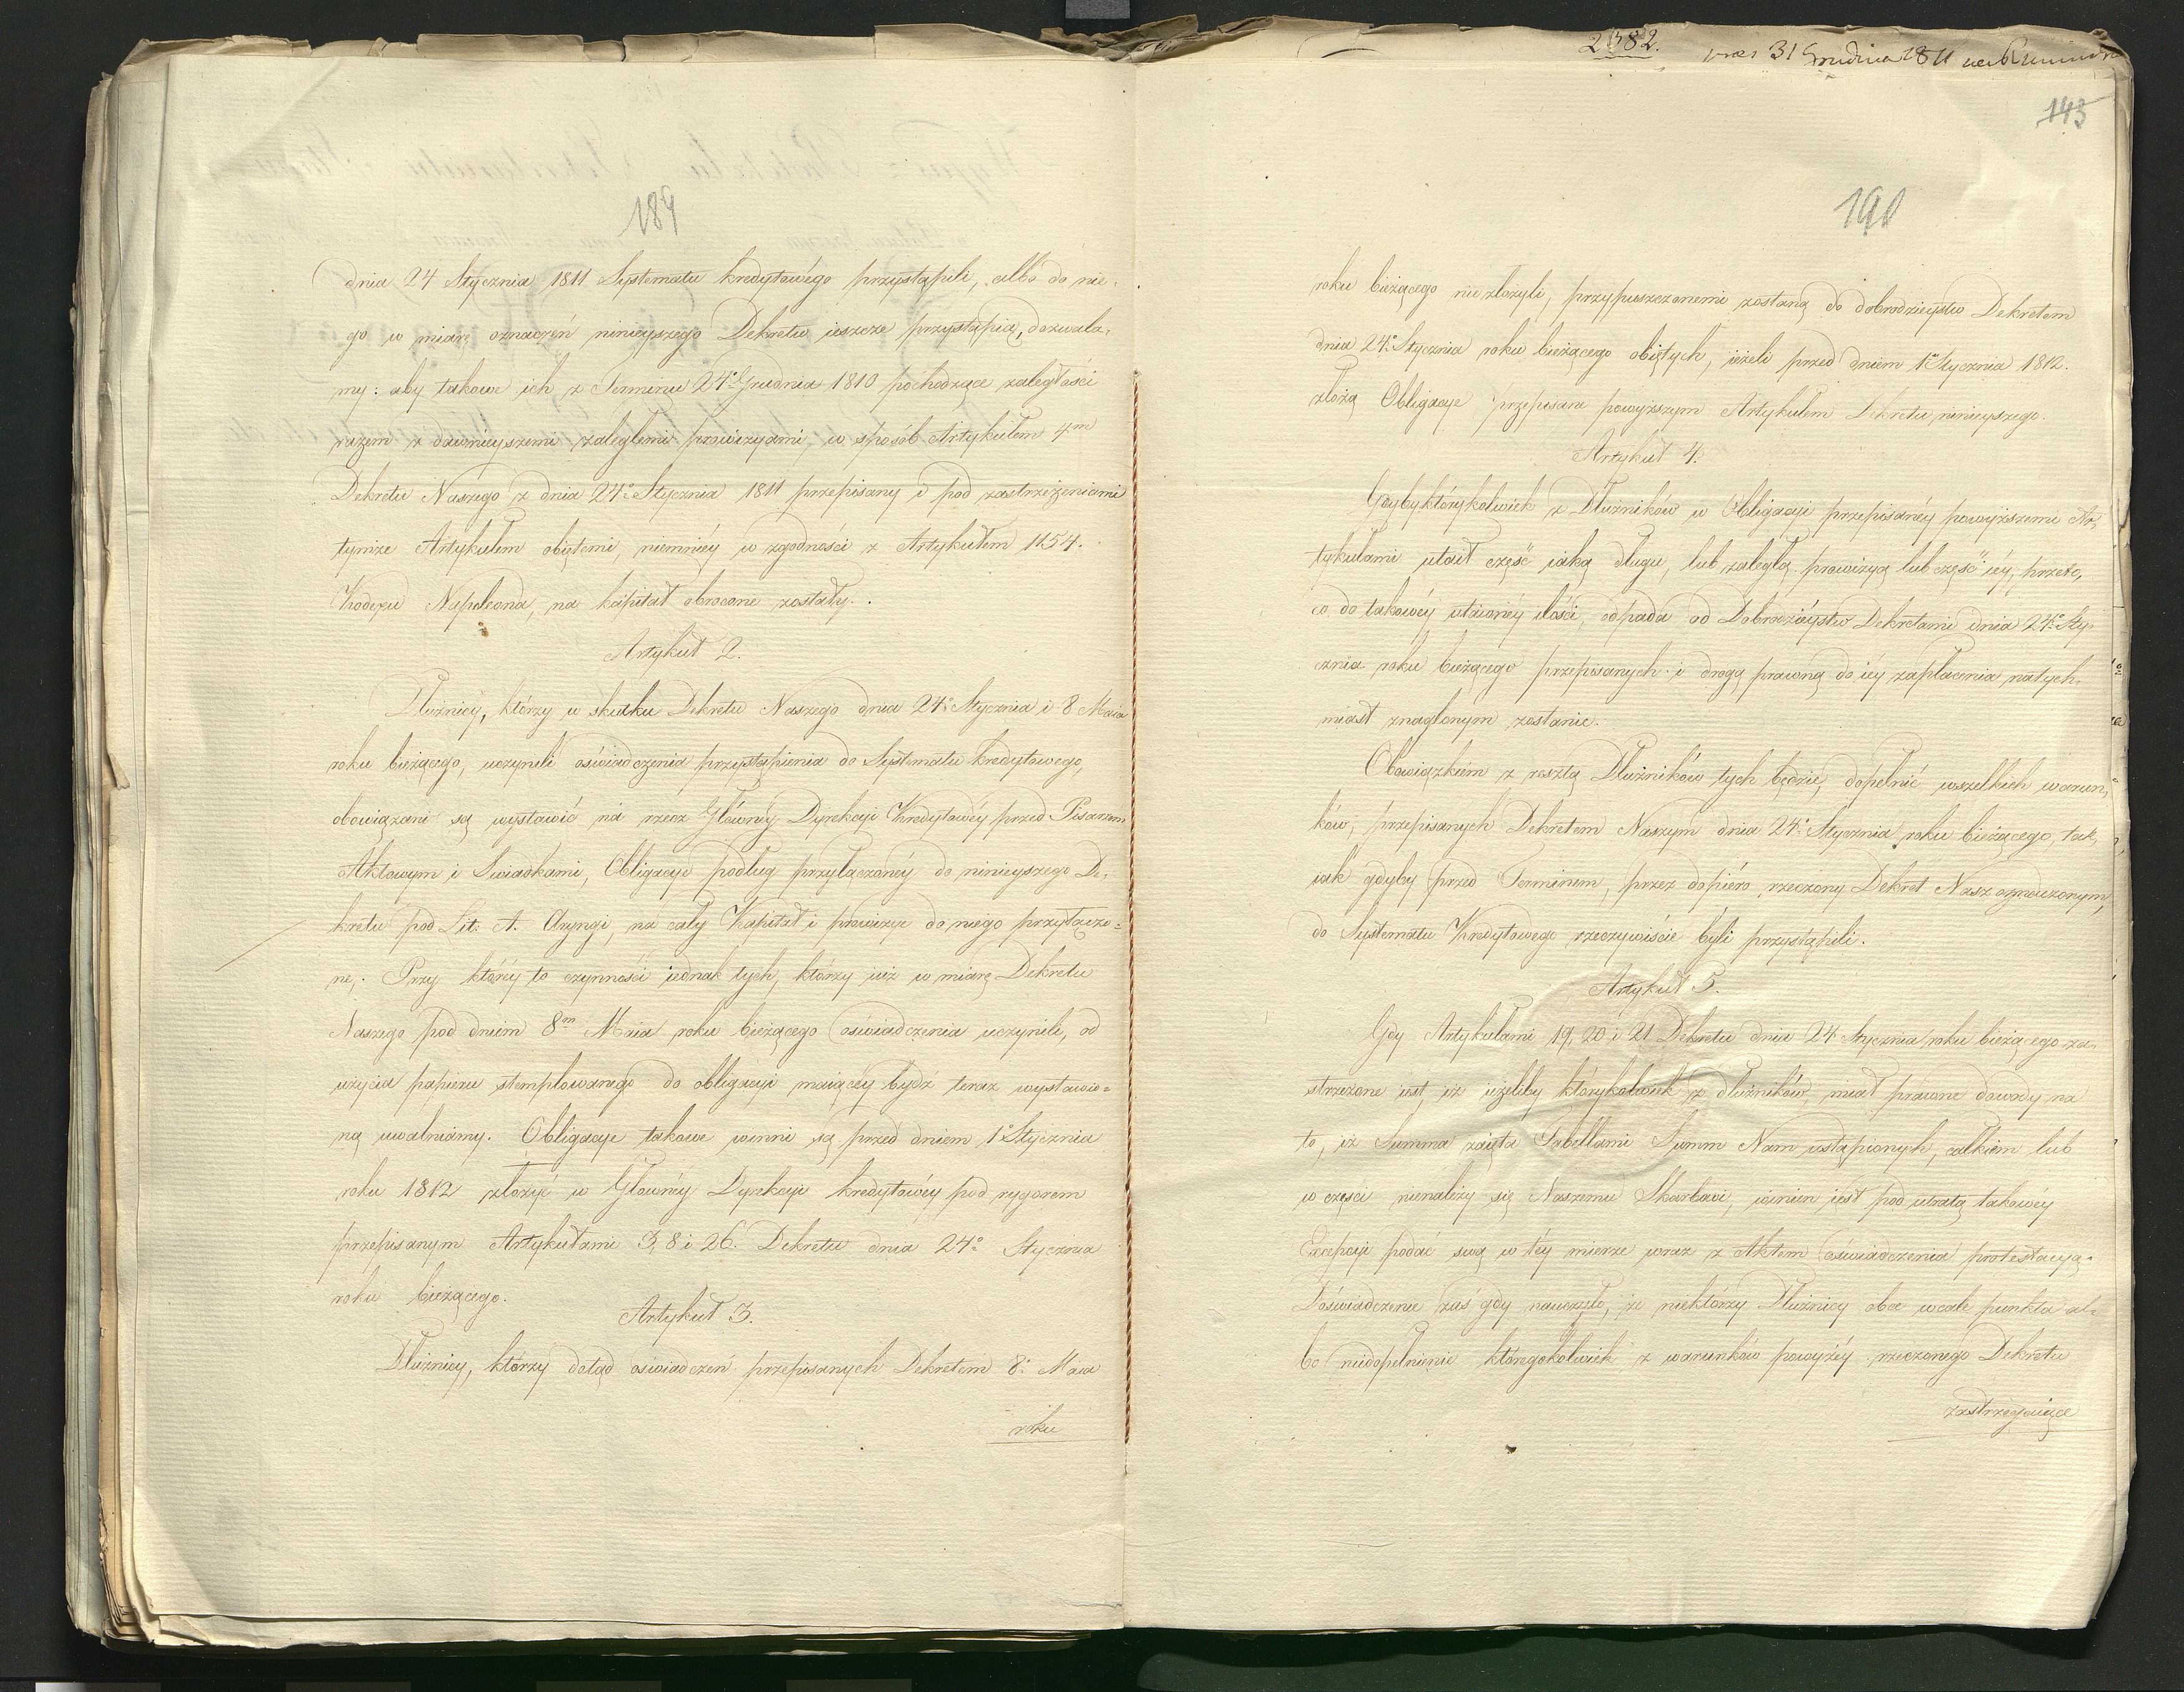 189
dnia 24 Stycznia 1811 Systematu kredytowego przystąpili, albo do nie-
go w miarę oznaczeń ninieyszego Dekretu ieszcze przystąpią, dozwala-
my: aby takowe ich z Terminu 24º Grudnia 1810 pochodzące zaległości
razem z dawnieyszemi zaległemi prowizyami, w sposób Artykułem 4m
Dekretu Naszego z dnia 24º Stycznia 1811 przepisany i pod zastrzeżeniami
tymże Artykułem obiętemi, niemniéy w zgodności z Artykułem 1154.
Kodexu Napoleona, na kapitał obrócone zostały.
Artykuł 2.
Dłużnicy, którzy w skutku Dekretu Naszego dnia 24º Stycznia i 8 Maia
roku bieżącego, uczynili oświadczenia przystąpienia do Systematu kredytowego,
obowiązani są wystawić na rzecz Główney Dyrekcyi Kredytowéy przed Pisarzem
Aktowym i Swiadkami, Obligacye podług przyłączonéy do ninieyszego De-
kretu pod Lit: A. Aryngi, na cały Kapitał i prowizye do niego przyłączo-
ne. Przy któréy to czynności iednak tych, którzy iuż w miarę Dekretu
Naszego pod dniem 8m Maia roku bieżącego oświadczenia uczynili, od
użycia papieru stemplowanego do obligacyi maiącéy bydź teraz wystawio-
ną uwalniamy. Obligacye takowe winni są przed dniem 1º Stycznia
roku 1812 złożyć w Głownéy Dyrekcyi kredytowéy pod rygorem
przepisanym Artykułami 3, 8 i 26. Dekretu dnia 24º Stycznia
roku bieżącego.
Artykuł 3.
Dłużnicy, którzy dotąd oświadczeń przepisanych Dekretem 8º Maia
roku
2382.
31 Grudnia 1811
143
190
roku bieżącego nie złożyli, przypuszczonemi zostaną do dobrodzieystw Dekretem
dnia 24º Stycznia roku bieżącego obiętych, ieżeli przed dniem 1º Stycznia 1812.
złożą Obligacye przepisane powyższym Artykułem Dekretu ninieyszego.
Artykuł 4.
Gdyby którykolwiek z Dłużników w Obligacyi przepisanéy powyższemi Ar-
tykułami utaił część iaką długu, lub zaległą prowizyą lub część iéy, przeto,
co do takowéy utaionéy ilości, odpada od Dobrodzieystw Dekretami dnia 24º Sty-
cznia roku bieżącego przepisanych i drogą prawną do iéy zapłacenia natych-
miast znaglonym zostanie.
Obowiązkiem z resztą Dłużników tych będzie, dopełnić wszelkich warun-
ków, przepisanych Dekretem Naszym dnia 24º Stycznia roku bieżącego, tak,
iak gdyby przed Terminem, przez dopiero rzeczony Dekret Nasz oznaczonym,
do Systematu Kredytowego rzeczywiście byli przystąpili.
Artykuł 5.
Gdy Artykułami 19, 20 i 21 Dekretu dnia 24 Stycznia roku bieżącego za-
strzeżone iest, iż ieżeliby którykolwiek z dłużników, miał prawne dowody na
to, iż Summa zaięta Tabellami Summ Nam ustąpionych, całkiem lub
w części nienależy się Naszemu Skarbowi, winien iest pod utratą takowéy
Excepcyi podać swą w téy mierze wraz z Aktem oświadczenia protestacyą.
Doświadczenie zaś gdy nauczyło, że niektórzy Dłużnicy obce wcale punkta al-
bo niedopełnienie któregokolwiek z warunków powyżéy rzeczonego Dekretu
zastrzegaiące